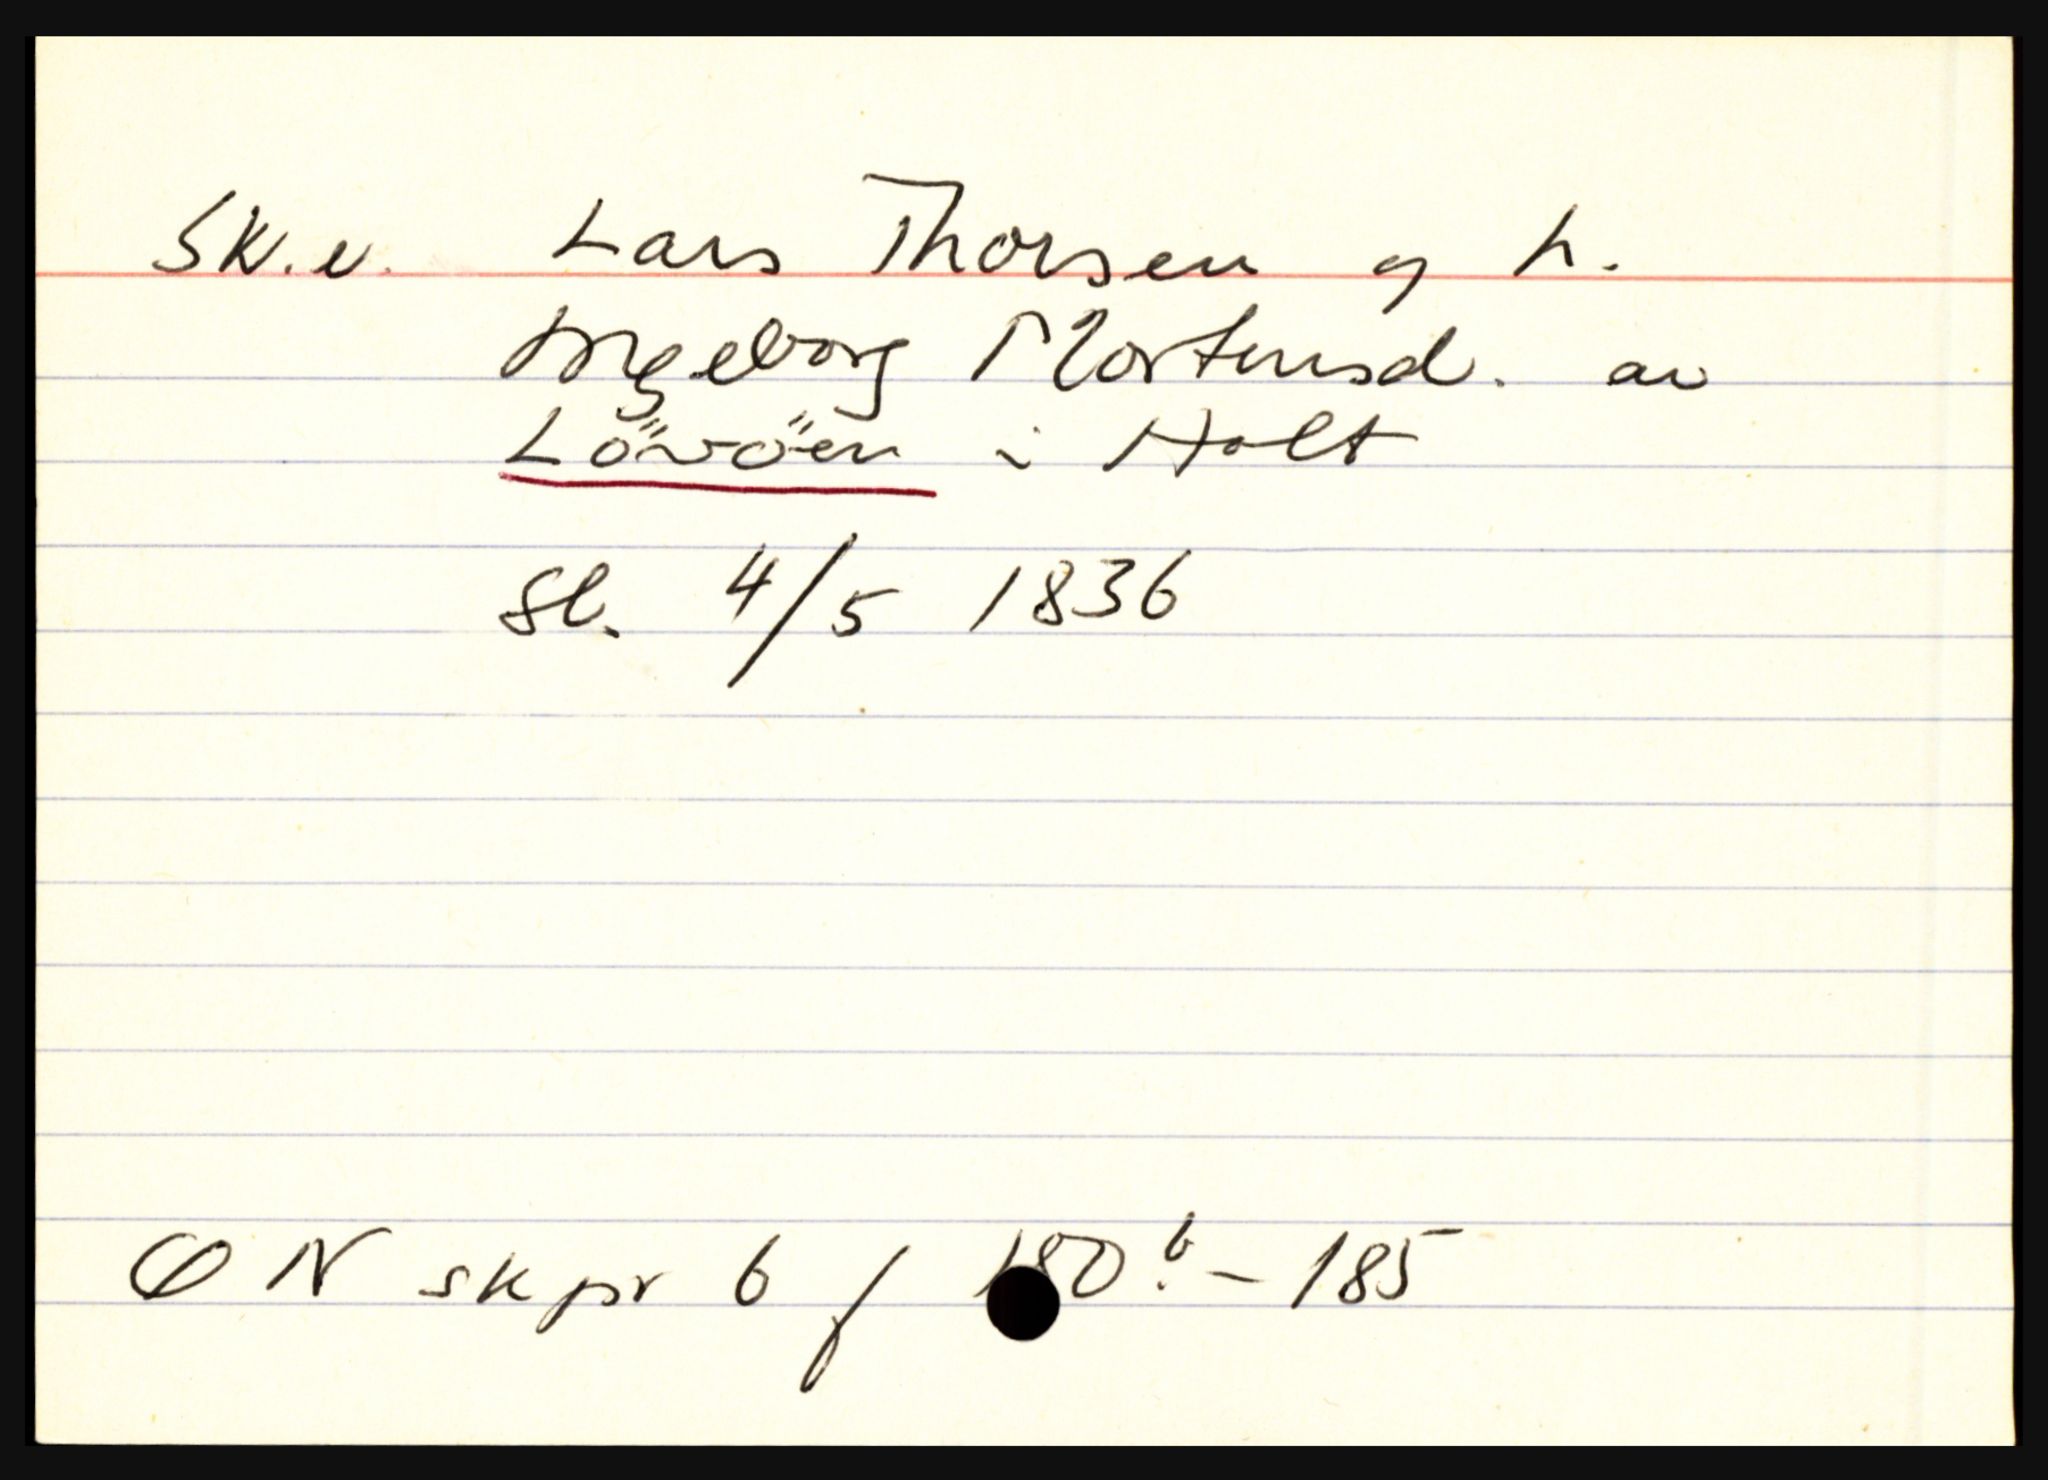 Sk.e. Lars Thorsen og h.
Ingeborg Mortensd. av
Lövöen i Holt
Sl. 4/5 1836
Ø N skpr 6 f 180b - 185